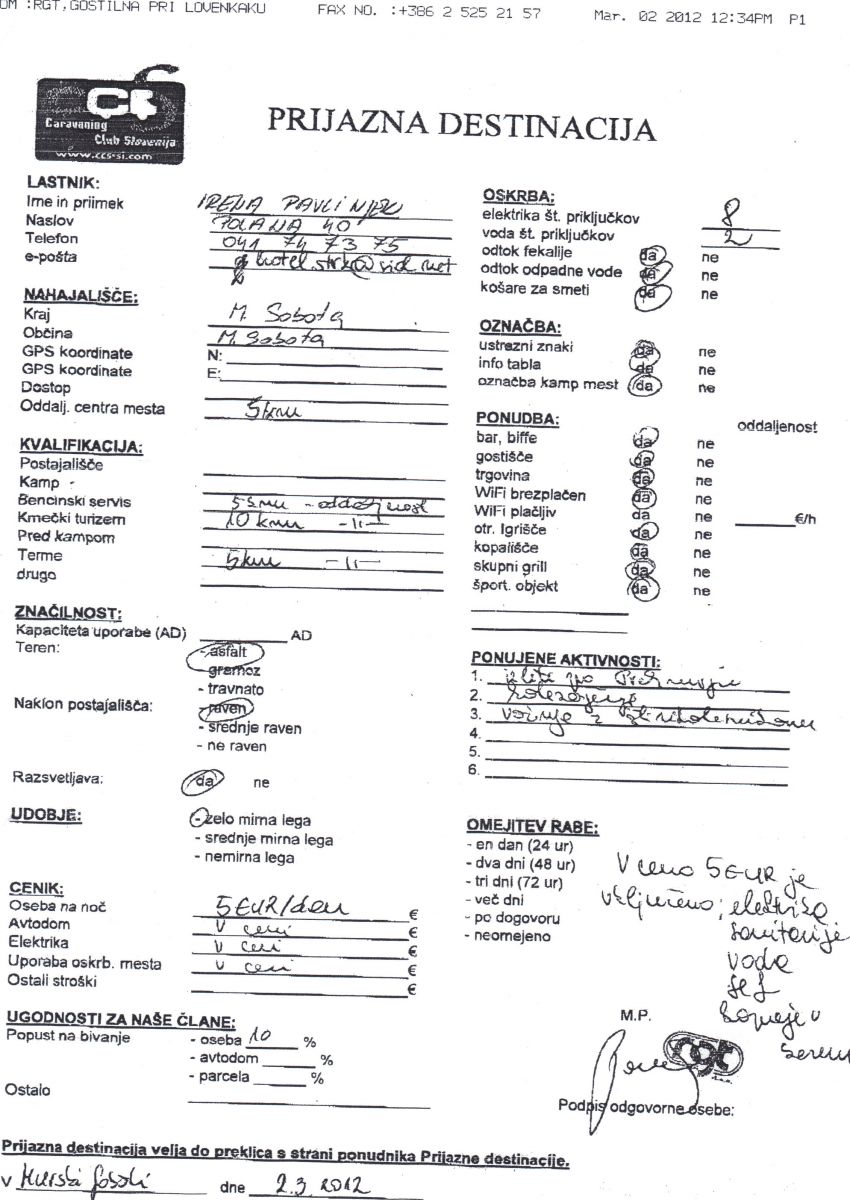 OM :RGT,GOSTILNA PRI LOVENKAKU FAX NO. :+386 2 525 21 57 Mar. 02 2012 12:34PM P1
Caravaning
Club Slovenija
www.ccs-si.com
PRIJAZNA DESTINACIJA
LASTNIK:
Ime in priimek IRENA PAVLINJEK
Naslov POLANA 40
Telefon 041 74 73 75
e-pošta hotel.strk@siol.net
NAHAJALIŠČE:
Kraj M. Sobota
Občina M. Sobota
GPS koordinate N:
GPS koordinate E:
Dostop
Oddalj. centra mesta 5 km
KVALIFIKACIJA:
Postajališče
Kamp -
Bencinski servis - oddaljenost
Kmečki turizem 10 km -11-
Pred kampom
Terme 5km -11-
drugo
ZNAČILNOST:
Kapaciteta uporabe (AD) AD
Teren: - asfalt
- gramoz
- travnato
Naklon postajališča: - raven
- srednje raven
- ne raven
Razsvetljava: da ne
UDOBJE: - zelo mirna lega
- srednje mirna lega
- nemirna lega
CENIK:
Oseba na noč 5 EUR/dan €
Avtodom V ceni €
Elektrika V ceni €
Uporaba oskrb. mesta V ceni €
Ostali stroški €
UGODNOSTI ZA NAŠE ČLANE:
Popust na bivanje - oseba 10 %
- avtodom %
- parcela %
Ostalo
OSKRBA:
elektrika št. priključkov 8
voda št. priključkov 2
odtok fekalije da ne
odtok odpadne vode da ne
košare za smeti da ne
OZNAČBA:
ustrezni znaki da ne
info tabla da ne
označba kamp mest da ne
PONUDBA: oddaljenost
bar, biffe da ne
gostišče da ne
trgovina da ne
WiFi brezplačen da ne
WiFi plačljiv da ne €/h
otr. Igrišče da ne
kopališče da ne
skupni grill da ne
šport. objekt da ne
PONUJENE AKTIVNOSTI:
1. izleti po Prekmurju
2. kolesarjenje
3. vožnja z
4.
5.
6.
OMEJITEV RABE:
- en dan (24 ur)
- dva dni (48 ur)
- tri dni (72 ur)
- več dni
- po dogovoru
- neomejeno
V ceno 5 EUR je
vključeno; elektrika
sanitarije
voda
sef
M.P.
RGT
Podpis odgovorne osebe:
Prijazna destinacija velja do preklica s strani ponudnika Prijazne destinacije.
v Murski Soboti dne 2.3.2012